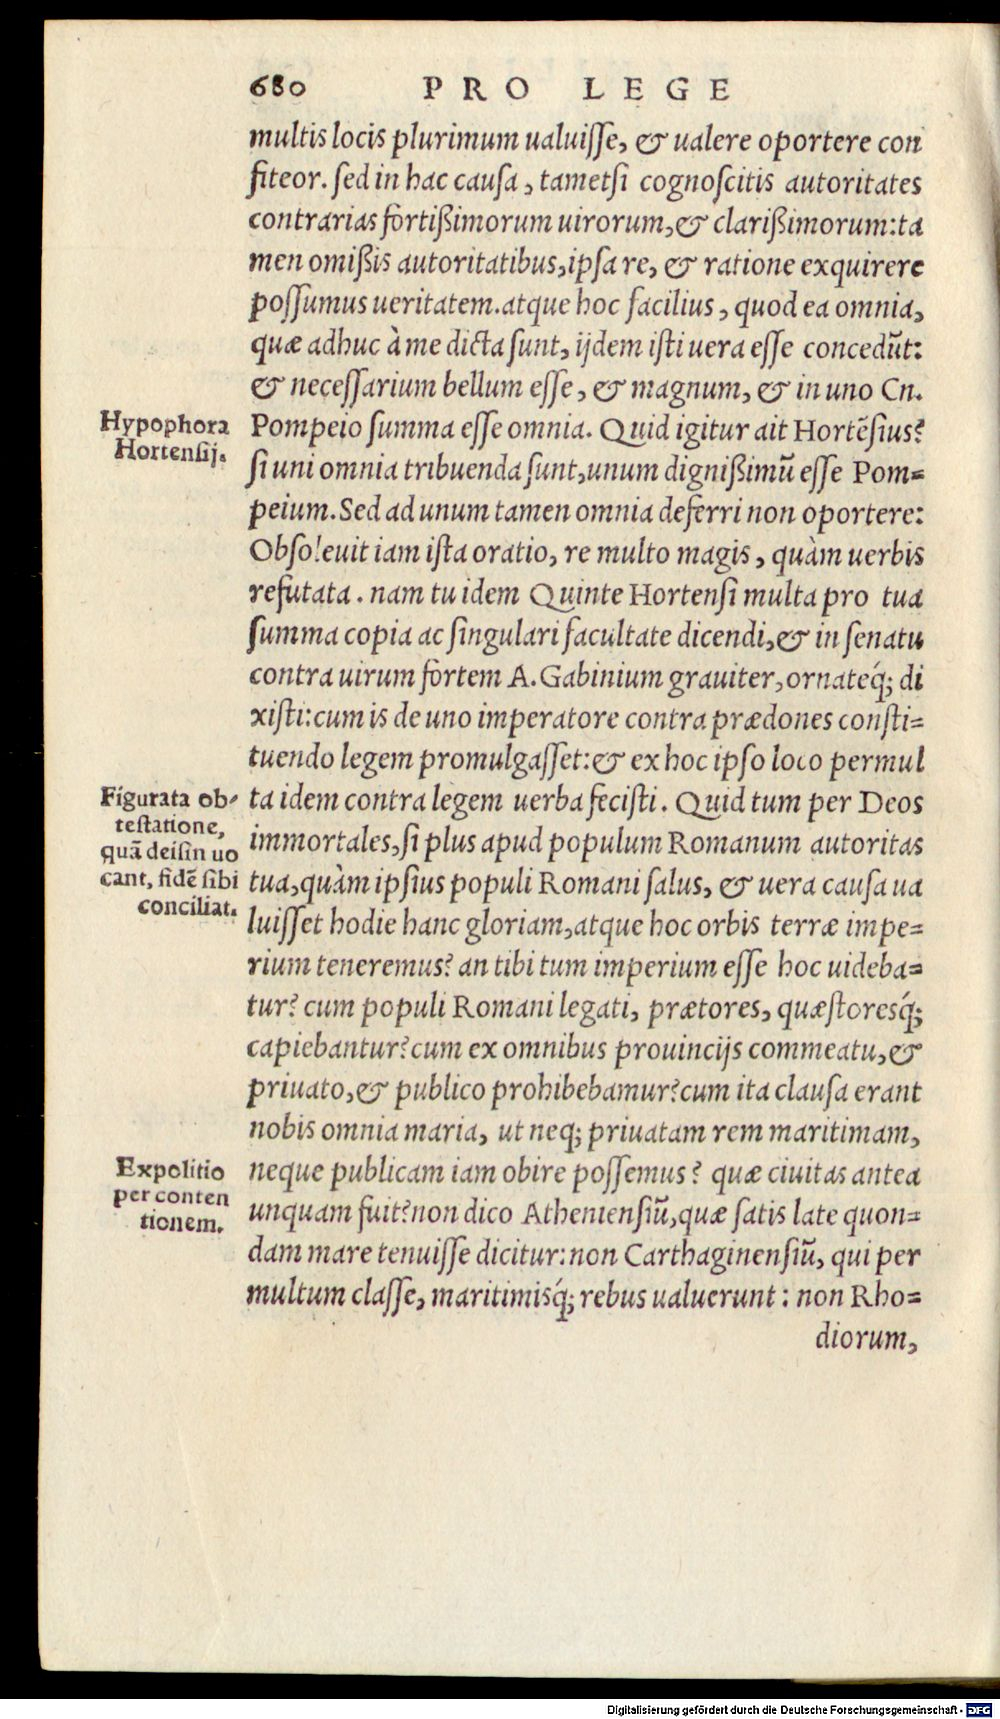 680 PRO LEGE
multis locis plurimum ualuisse, & ualere oportere con
fiteor. sed in hac causa, tametsi cognoscitis autoritates
contrarias fortißimorum uirorum, & clarißimorum: ta
men omißis autoritatibus, ipsa re, & ratione exquirere
possumus ueritatem. atque hoc facilius, quod ea omnia,
quæ adhuc à me dicta sunt, ijdem isti uera esse concedūt:
& necessarium bellum esse, & magnum, & in uno Cn.
Hypophora
Hortensij.
Pompeio summa esse omnia. Quid igitur ait Hortēsius?
si uni omnia tribuenda sunt, unum dignißimū esse Pom=
peium. Sed ad unum tamen omnia deferri non oportere:
Obsoleuit iam ista oratio, re multo magis, quàm uerbis
refutata. nam tu idem Quinte Hortensi multa pro tua
summa copia ac singulari facultate dicendi, & in senatu
contra uirum fortem A. Gabinium grauiter, ornateq́; di
xisti: cum is de uno imperatore contra prædones consti=
tuendo legem promulgasset: & ex hoc ipso loco permul
Figurata ob-
testatione,
quā deisin uo
cant, fidē sibi
conciliat.
ta idem contra legem uerba fecisti. Quid tum per Deos
immortales, si plus apud populum Romanum autoritas
tua, quàm ipsius populi Romani salus, & uera causa ua
luisset hodie hanc gloriam, atque hoc orbis terræ impe=
rium teneremus? an tibi tum imperium esse hoc uideba=
tur? cum populi Romani legati, prætores, quæstoresq́;
capiebantur? cum ex omnibus prouincijs commeatu, &
priuato, & publico prohibebamur? cum ita clausa erant
nobis omnia maria, ut neq; priuatam rem maritimam,
Expolitio
per conten
tionem.
neque publicam iam obire possemus? quæ ciuitas antea
unquam fuit? non dico Atheniensiū, quæ satis late quon=
dam mare tenuisse dicitur: non Carthaginensiū, qui per
multum classe, maritimisq́; rebus ualuerunt: non Rho=
diorum,
Digitalisierung gefördert durch die Deutsche Forschungsgemeinschaft - DFG